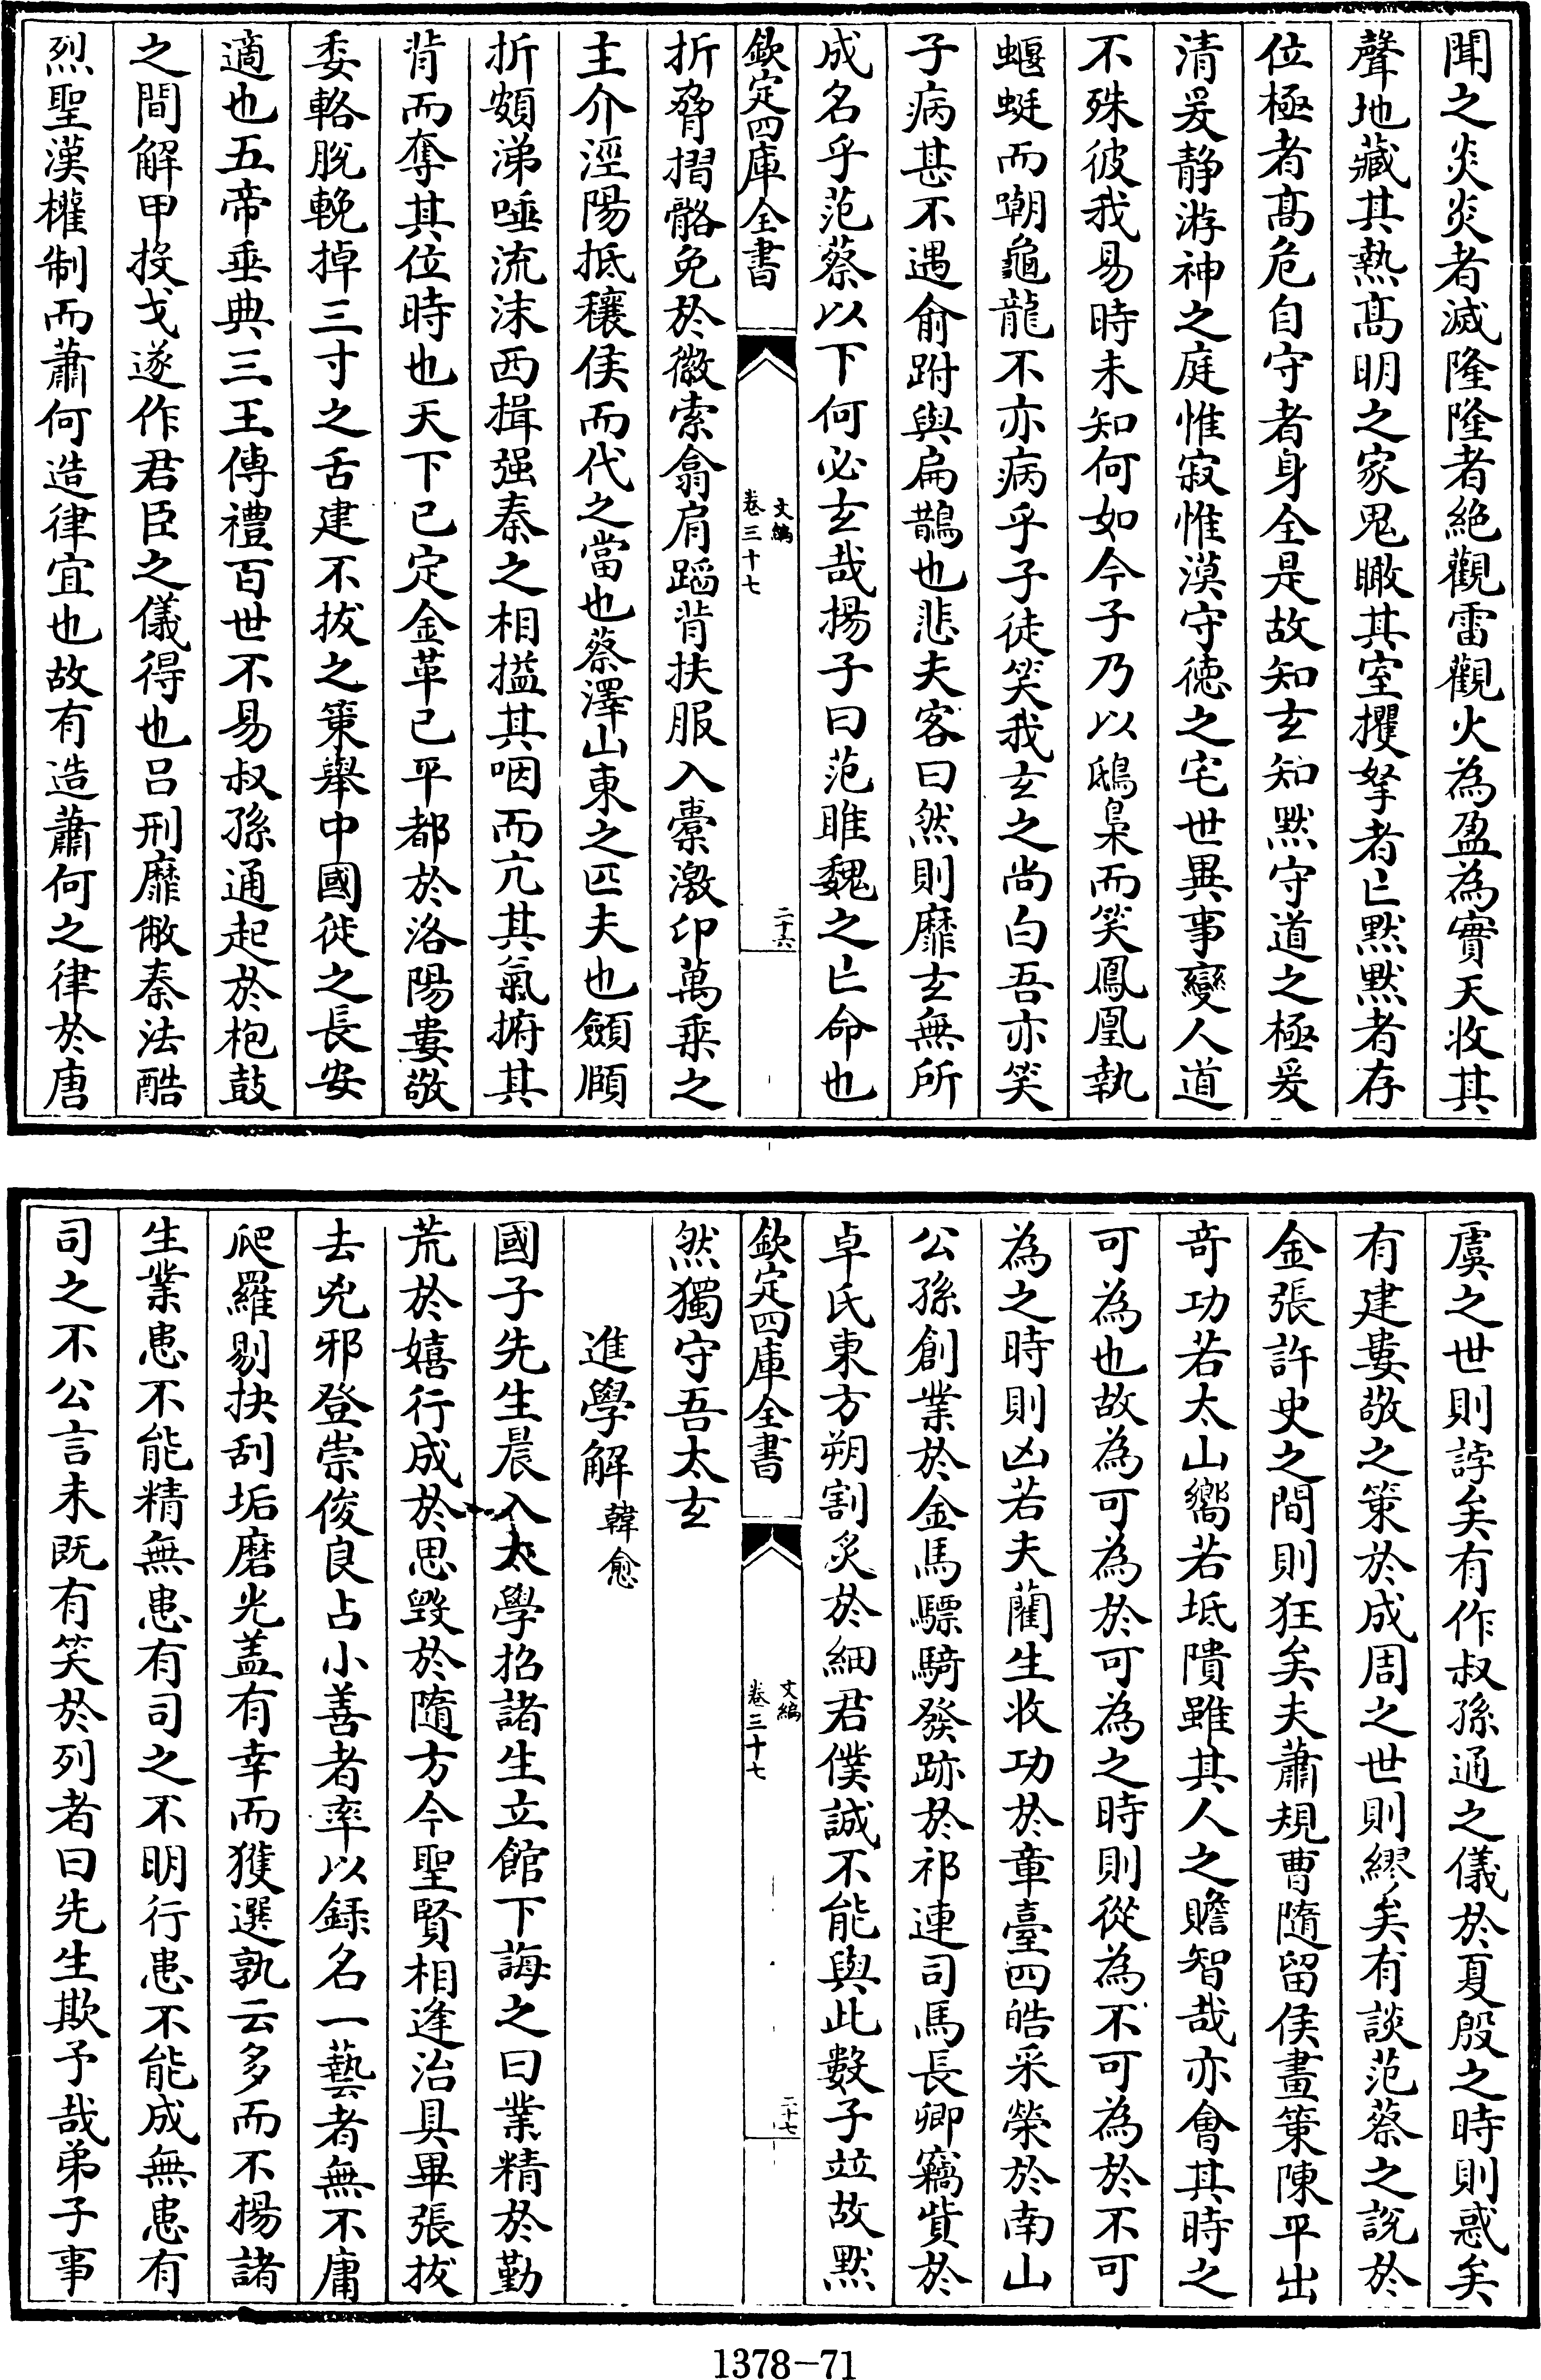 聞之炎炎者滅隆隆者絶觀雷觀火為盈為實天收其
聲地藏其熱髙明之家鬼瞰其室攫拏者亡黙黙者存
位極者髙危自守者身全是故知玄知黙守道之極爰
清爰静游神之庭惟寂惟漠守徳之宅世異事變人道
不殊彼我易時未知何如今子乃以鴟梟而笑鳳凰執
蝘蜓而嘲龜龍不亦病乎子徒笑我玄之尚白吾亦笑
子病甚不遇俞跗與扁鵲也悲夫客曰然則靡玄無所
成名乎范蔡以下何必玄哉揚子曰范雎魏之亡命也
欽定四庫全書
文編
卷三十七
二十六
折脅摺髂免於徽索翕肩蹈背扶服入橐激卬萬乗之
主介涇陽抵穰侯而代之當也蔡澤山東之匹夫也顩頤
折頞涕唾流沫西揖强秦之相搤其咽而亢其氣捬其
背而奪其位時也天下已定金革已平都於洛陽婁敬
委輅脱輓掉三寸之舌建不拔之策舉中國徙之長安
適也五帝垂典三王傳禮百世不易叔孫通起於枹鼓
之間解甲投戈遂作君臣之儀得也吕刑靡敝秦法酷
烈聖漢權制而蕭何造律宜也故有造蕭何之律於唐
虞之世則誖矣有作叔孫通之儀於夏殷之時則惑矣
有建婁敬之策於成周之世則繆矣有談范蔡之説於
金張許史之間則狂矣夫蕭規曹隨留侯畫策陳平出
奇功若太山嚮若坻隤雖其人之贍智哉亦會其時之
可為也故為可為於可為之時則從為不可為於不可
為之時則凶若夫藺生收功於章臺四皓采榮於南山
公孫創業於金馬驃騎發跡於祁連司馬長卿竊貲於
卓氏東方朔割炙於細君僕誠不能與此數子竝故黙
欽定四庫全書
文編
卷三十七
二十七
然獨守吾太玄
進學解 韓愈
國子先生晨入太學招諸生立館下誨之曰業精於勤
荒於嬉行成於思毁於隨方今聖賢相逢治具畢張拔
去兇邪登崇俊良占小善者率以録名一藝者無不庸
爬羅剔抉刮垢磨光盖有幸而獲選孰云多而不揚諸
生業患不能精無患有司之不明行患不能成無患有
司之不公言未既有笑於列者曰先生欺予哉弟子事
1378—71